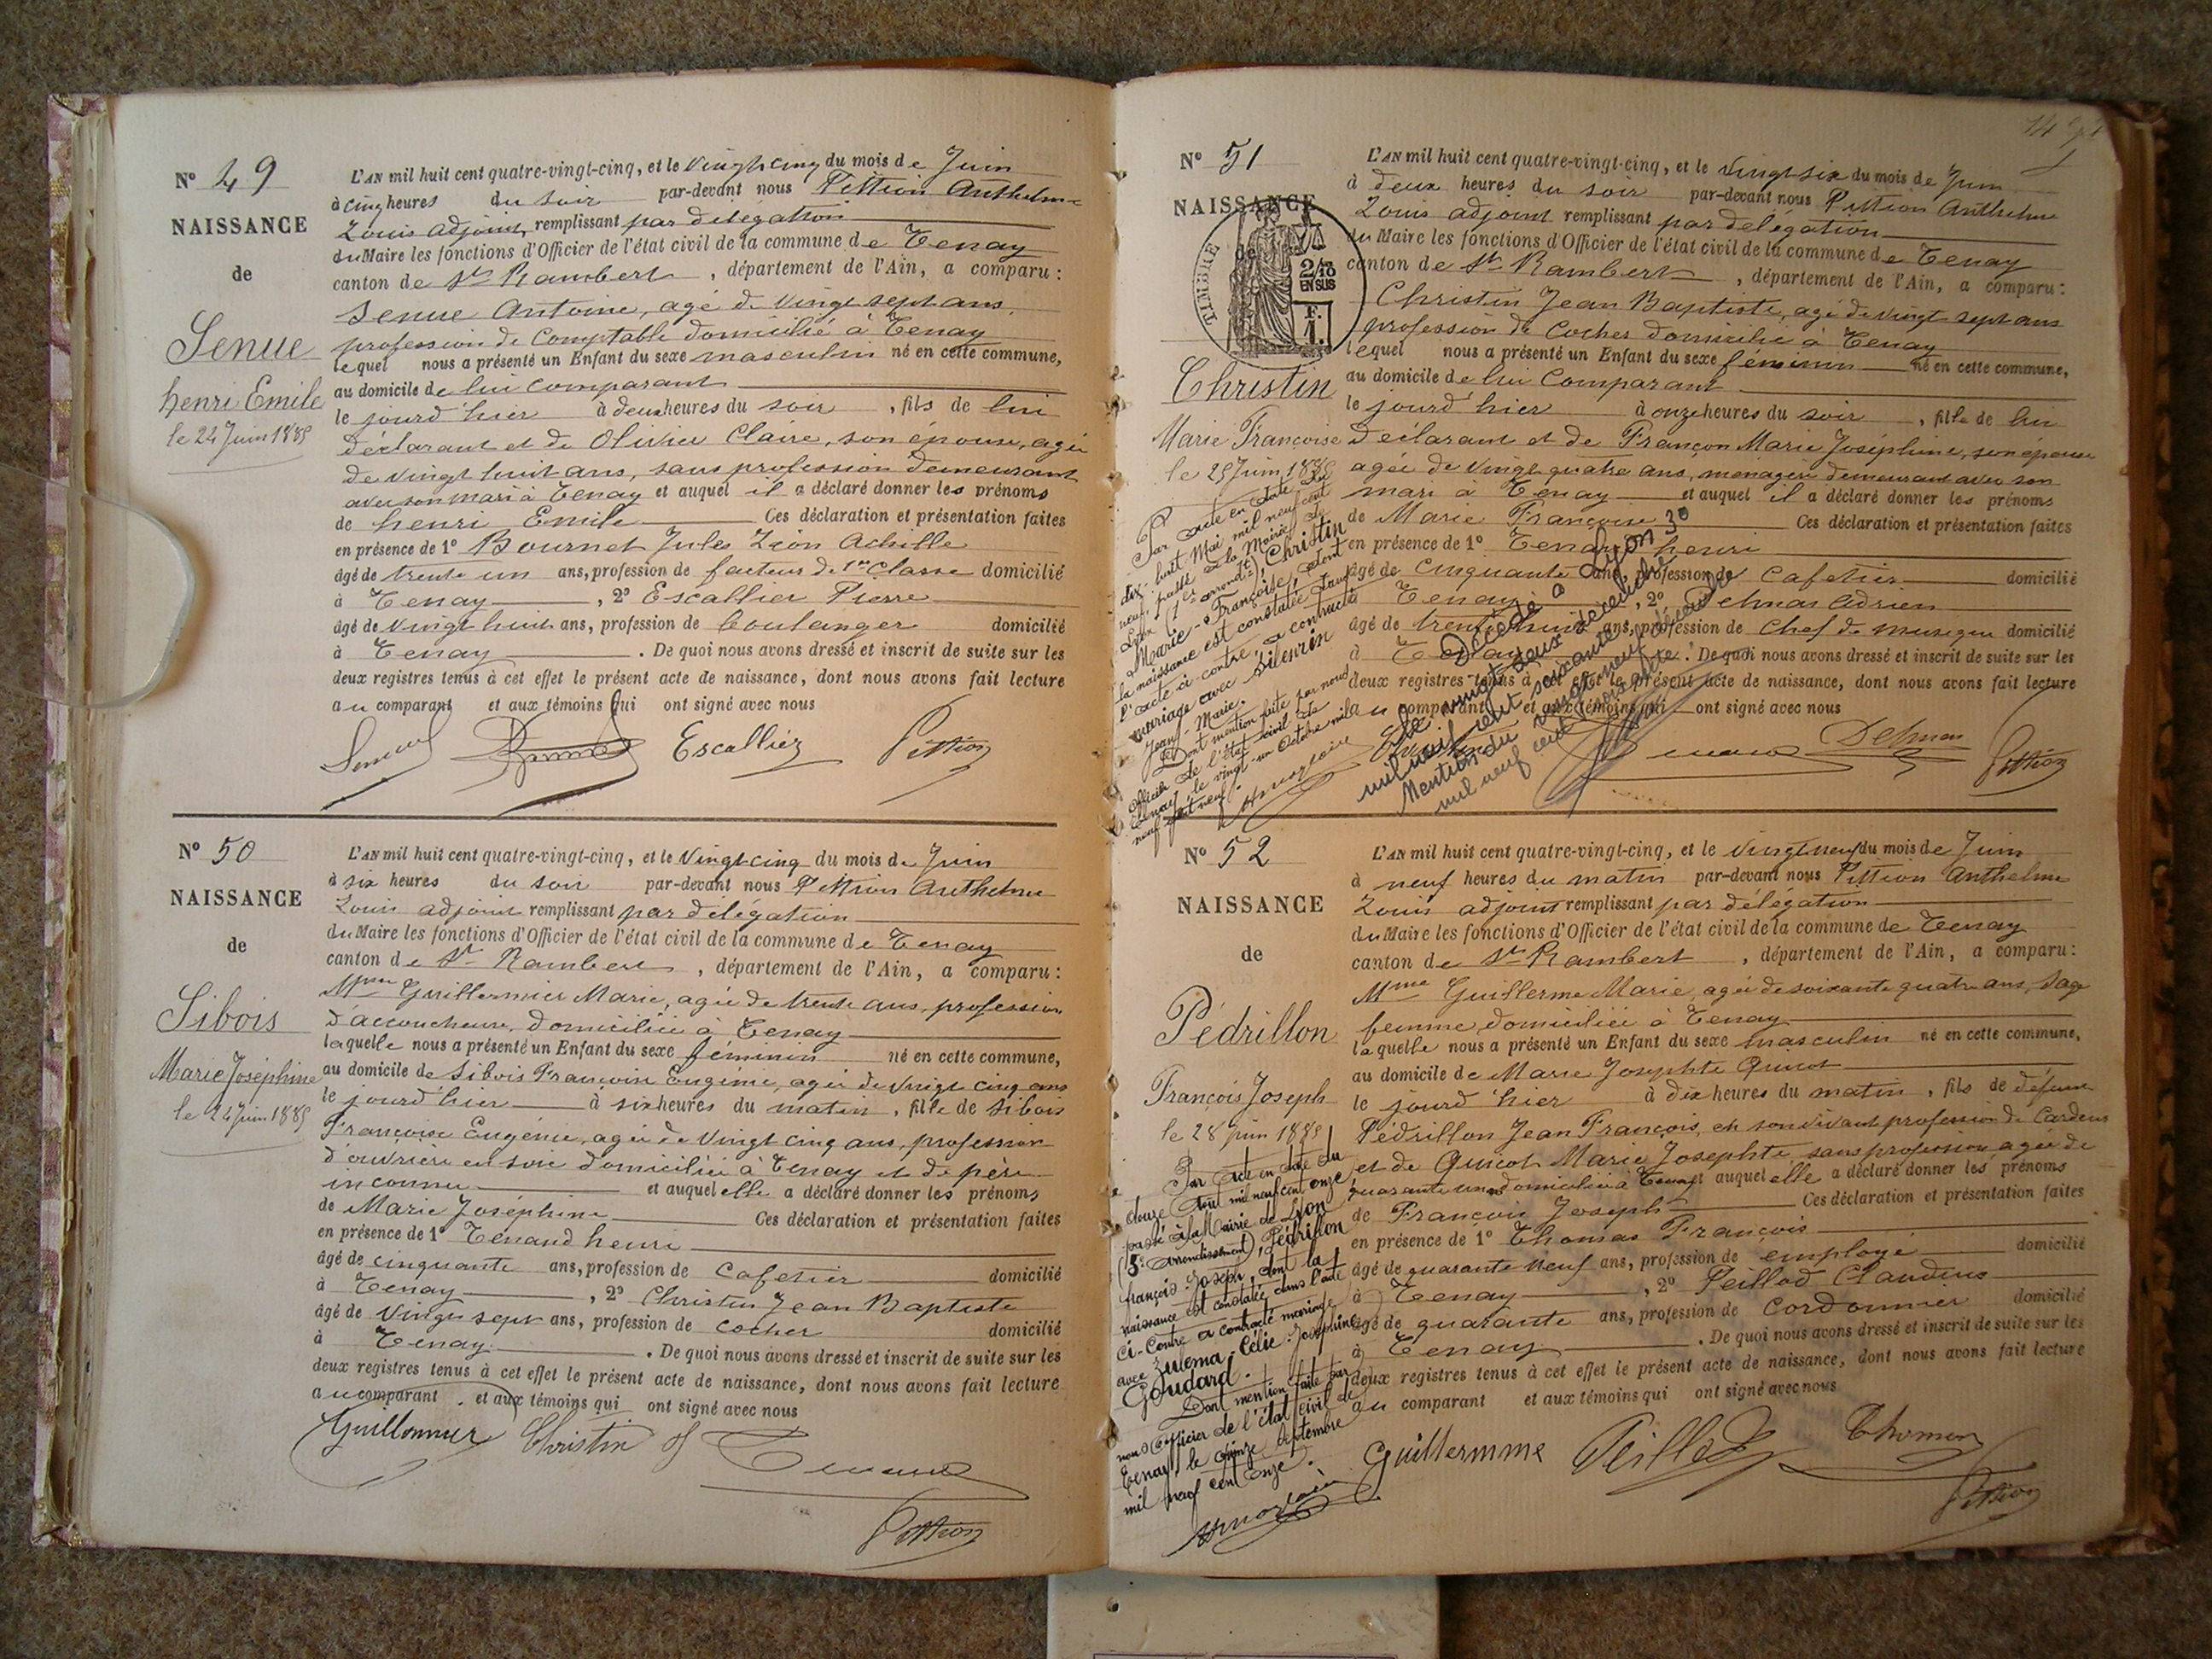 N° 49
NAISSANCE
de
Senue
henri Emile
le 24 Juin 1885
L'AN mil huit cent quatre-vingt-cinq, et le vingt cinq du mois de Juin
à cinq heures du soir par-devant nous Pittion Anthelme
Louis adjoint, remplissant par délégation
du Maire les fonctions d'Officier de l'état civil de la commune de Tenay
canton de St Rambert, département de l'Ain, a comparu :
Senue Antoine, agé de vingt sept ans,
profession de Comptable domicilié à Tenay
lequel nous a présenté un Enfant du sexe masculin né en cette commune,
au domicile de lui comparant
le jourd'hier à deux heures du soir, fils de lui
déclarant et de Olivier Claire, son épouse, agée
de vingt huit ans, sans profession demeurant
avec son mari à Tenay et auquel il a déclaré donner les prénoms
de henri Emile Ces déclaration et présentation faites
en présence de 1° Bournet Jules Léon Achille
âgé de trente un ans, profession de facteur de 1re Classe domicilié
à Tenay, 2° Escallier Pierre
âgé de vingt huit ans, profession de boulanger domicilié
à Tenay. De quoi nous avons dressé et inscrit de suite sur les
deux registres tenus à cet effet le présent acte de naissance, dont nous avons fait lecture
au comparant et aux témoins qui ont signé avec nous
Escallier Pittion
N° 50
NAISSANCE
de
Sibois
Marie Joséphine
le 24 Juin 1885
L'AN mil huit cent quatre-vingt-cinq, et le vingt cinq du mois de Juin
à six heures du soir par-devant nous Pittion Anthelme
Louis adjoint remplissant par délégation
du Maire les fonctions d'Officier de l'état civil de la commune de Tenay
canton de St Rambert, département de l'Ain, a comparu :
Mme Guillermier Marie, agée de trente ans, profession
d'accoucheuse, domiciliée à Tenay
laquelle nous a présenté un Enfant du sexe féminin né en cette commune,
au domicile de Sibois Françoise Eugénie, agée de vingt cinq ans
le jourd'hier à six heures du matin, fille de Sibois
Françoise Eugénie, agée de vingt cinq ans, profession
d'ouvrière en soie domiciliée à Tenay et de père
inconnu et auquel elle a déclaré donner les prénoms
de Marie Joséphine Ces déclaration et présentation faites
en présence de 1° Tenand henri
âgé de cinquante ans, profession de Cafetier domicilié
à Tenay, 2° Christin Jean Baptiste
âgé de vingt sept ans, profession de cocher domicilié
à Tenay. De quoi nous avons dressé et inscrit de suite sur les
deux registres tenus à cet effet le présent acte de naissance, dont nous avons fait lecture
au comparant et aux témoins qui ont signé avec nous
Christin
Pittion
N° 51
NAISSANCE
de
TIMBRE
2/10
EN SUS
F.
1.
Christin
Marie Françoise
le 25 Juin 1885
Par acte en date du
dix huit Mai mil neuf cent
neuf, passé à la Mairie de
Lyon Christin
Marie-Françoise, dont
la naissance est constatée dans
l'acte ci-contre, a contracté
mariage avec Silenrin
Jean-Marie.
Dont mention faite par nous
Officier de l'état civil de
Tenay le vingt-un Octobre mil
neuf cent neuf.
L'AN mil huit cent quatre-vingt-cinq, et le vingt six du mois de Juin
à deux heures du soir par-devant nous Pittion Anthelme
Louis adjoint remplissant par délégation
du Maire les fonctions d'Officier de l'état civil de la commune de Tenay
canton de St Rambert, département de l'Ain, a comparu :
Christin Jean Baptiste, agé de vingt sept ans
profession de Cocher domicilié à Tenay
lequel nous a présenté un Enfant du sexe féminin né en cette commune,
au domicile de lui Comparant
le jourd'hier à onze heures du soir, fille de lui
déclarant et de Françon Marie Joséphine, son épouse
agée de vingt quatre ans, ménagère demeurant avec son
mari à Tenay et auquel il a déclaré donner les prénoms
de Marie Françoise Ces déclaration et présentation faites
en présence de 1° Tenand henri
âgé de cinquante ans, profession de Cafetier domicilié
à Tenay, 2° Delmas Adrien
âgé de trente huit ans, profession de Chef de musique domicilié
à Tenay. De quoi nous avons dressé et inscrit de suite sur les
deux registres tenus à cet effet le présent acte de naissance, dont nous avons fait lecture
au comparant et aux témoins qui ont signé avec nous
Décédée à Lyon 3e
le vingt deux décembre
mil neuf cent soixante
Mention du vingt neuf décembre
mil neuf cent soixante.
Delmas
Pittion
N° 52
NAISSANCE
de
Pédrillon
François Joseph
le 28 juin 1885
Par acte en date du
douze Août mil neuf cent onze
passé à la Mairie de Lyon
(5e arrondissement), Pédrillon
françois-Joseph, dont la
naissance est constatée dans l'acte
ci-contre a contracté mariage
avec Zulema-Célie-Joséphine
Goudard.
Dont mention faite par
nous Officier de l'état civil de
Tenay, le quinze Septembre
mil neuf cent onze.
L'AN mil huit cent quatre-vingt-cinq, et le vingt neuf du mois de Juin
à neuf heures du matin par-devant nous Pittion Anthelme
Louis adjoint remplissant par délégation
du Maire les fonctions d'Officier de l'état civil de la commune de Tenay
canton de St Rambert, département de l'Ain, a comparu :
Mme Guillerme Marie, agée de soixante quatre ans, Sage
femme, domiciliée à Tenay
laquelle nous a présenté un Enfant du sexe masculin né en cette commune,
au domicile de Marie Josephte Quicot
le jourd'hier à dix heures du matin, fils de défunt
Pédrillon Jean François, en son vivant profession de Cardeur
et de Quicot Marie Josephte, sans profession agée de
quarante un ans domiciliée à Tenay et auquel elle a déclaré donner les prénoms
de François Joseph Ces déclaration et présentation faites
en présence de 1° Thomas François
âgé de quarante neuf ans, profession de employé domicilié
à Tenay, 2° Peillod Claudius
âgé de quarante ans, profession de Cordonnier domicilié
à Tenay. De quoi nous avons dressé et inscrit de suite sur les
deux registres tenus à cet effet le présent acte de naissance, dont nous avons fait lecture
au comparant et aux témoins qui ont signé avec nous
Guillermme Peillod Thomas
Pittion